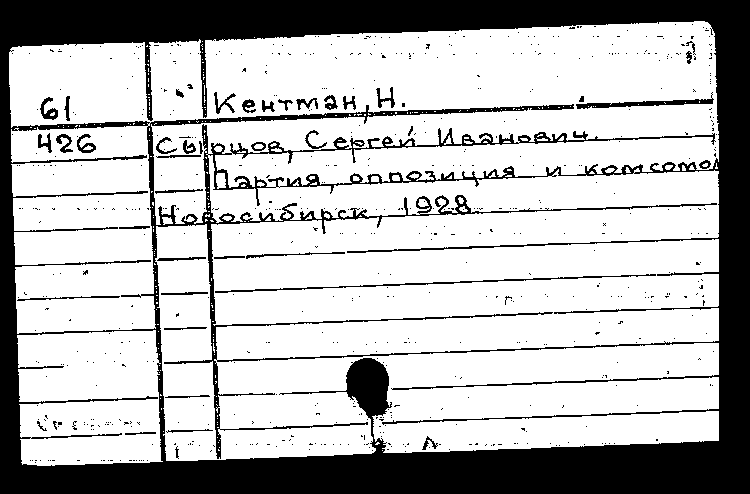 61 Кентман, Н.
426 Сырцов, Сергей Иванович.
Партия, оппозиция и комсомол
Новосибирск, 1928